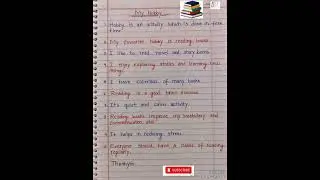 My Hobby
1. Hobby is an activity which is done in free
time.
2. My favorite hobby is reading books.
3. I like to read novel and story books.
4. I enjoy exploring stories and learning new
things.
5. I have collection of many books.
6. Reading is a good brain exercise.
7. It's quiet and calm activity.
8. Reading books improve my vocabulary and
communication skill.
9. It helps in reducing stress.
10. Everyone should have a habit of reading
regularly.
Thankyou.
SUBSCRIBE